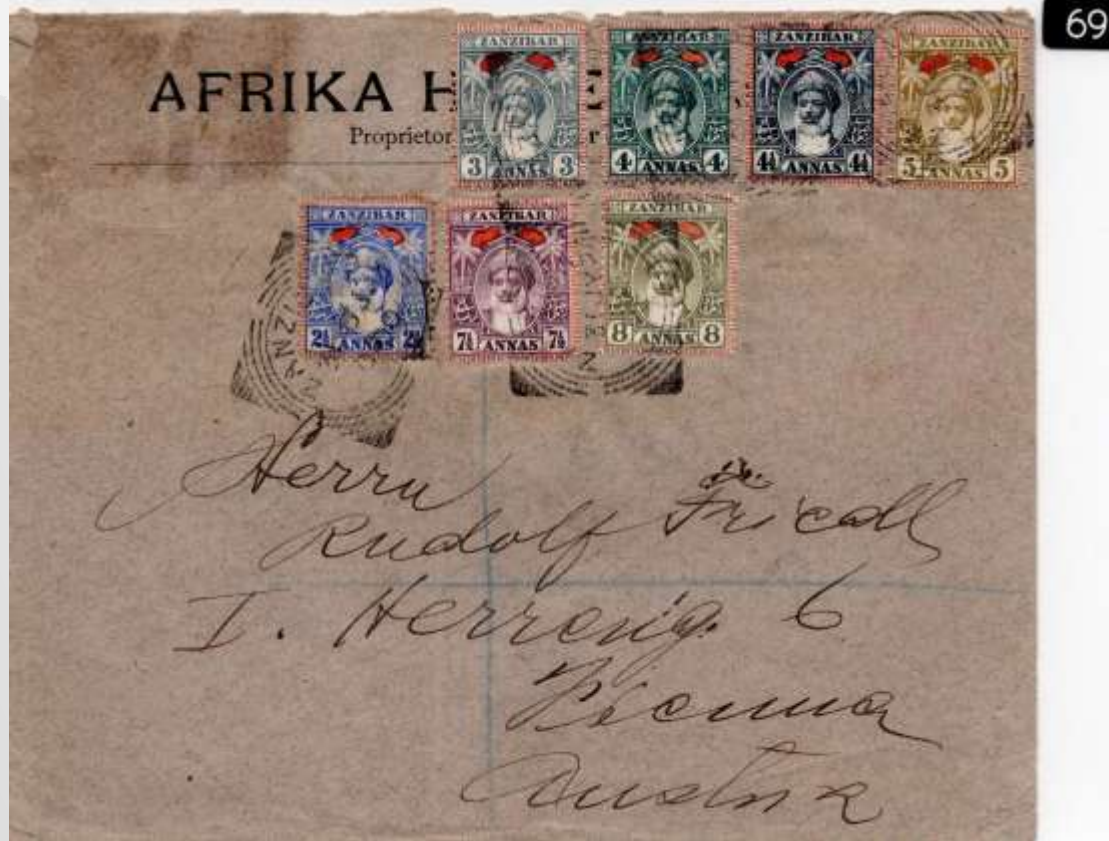 69
AFRIKA H E
Proprietor r
ZANZIBAR
3 ANNAS 3
ZANZIBAR
4 ANNAS 4
ZANZIBAR
4½ ANNAS 4½
ZANZIBAR
5 ANNAS 5
ZANZIBAR
2½ ANNAS 2½
ZANZIBAR
7½ ANNAS 7½
ZANZIBAR
8 ANNAS 8
Herrn
Rudolf Friedl
I. Herreng. 6
Vienna
Austria